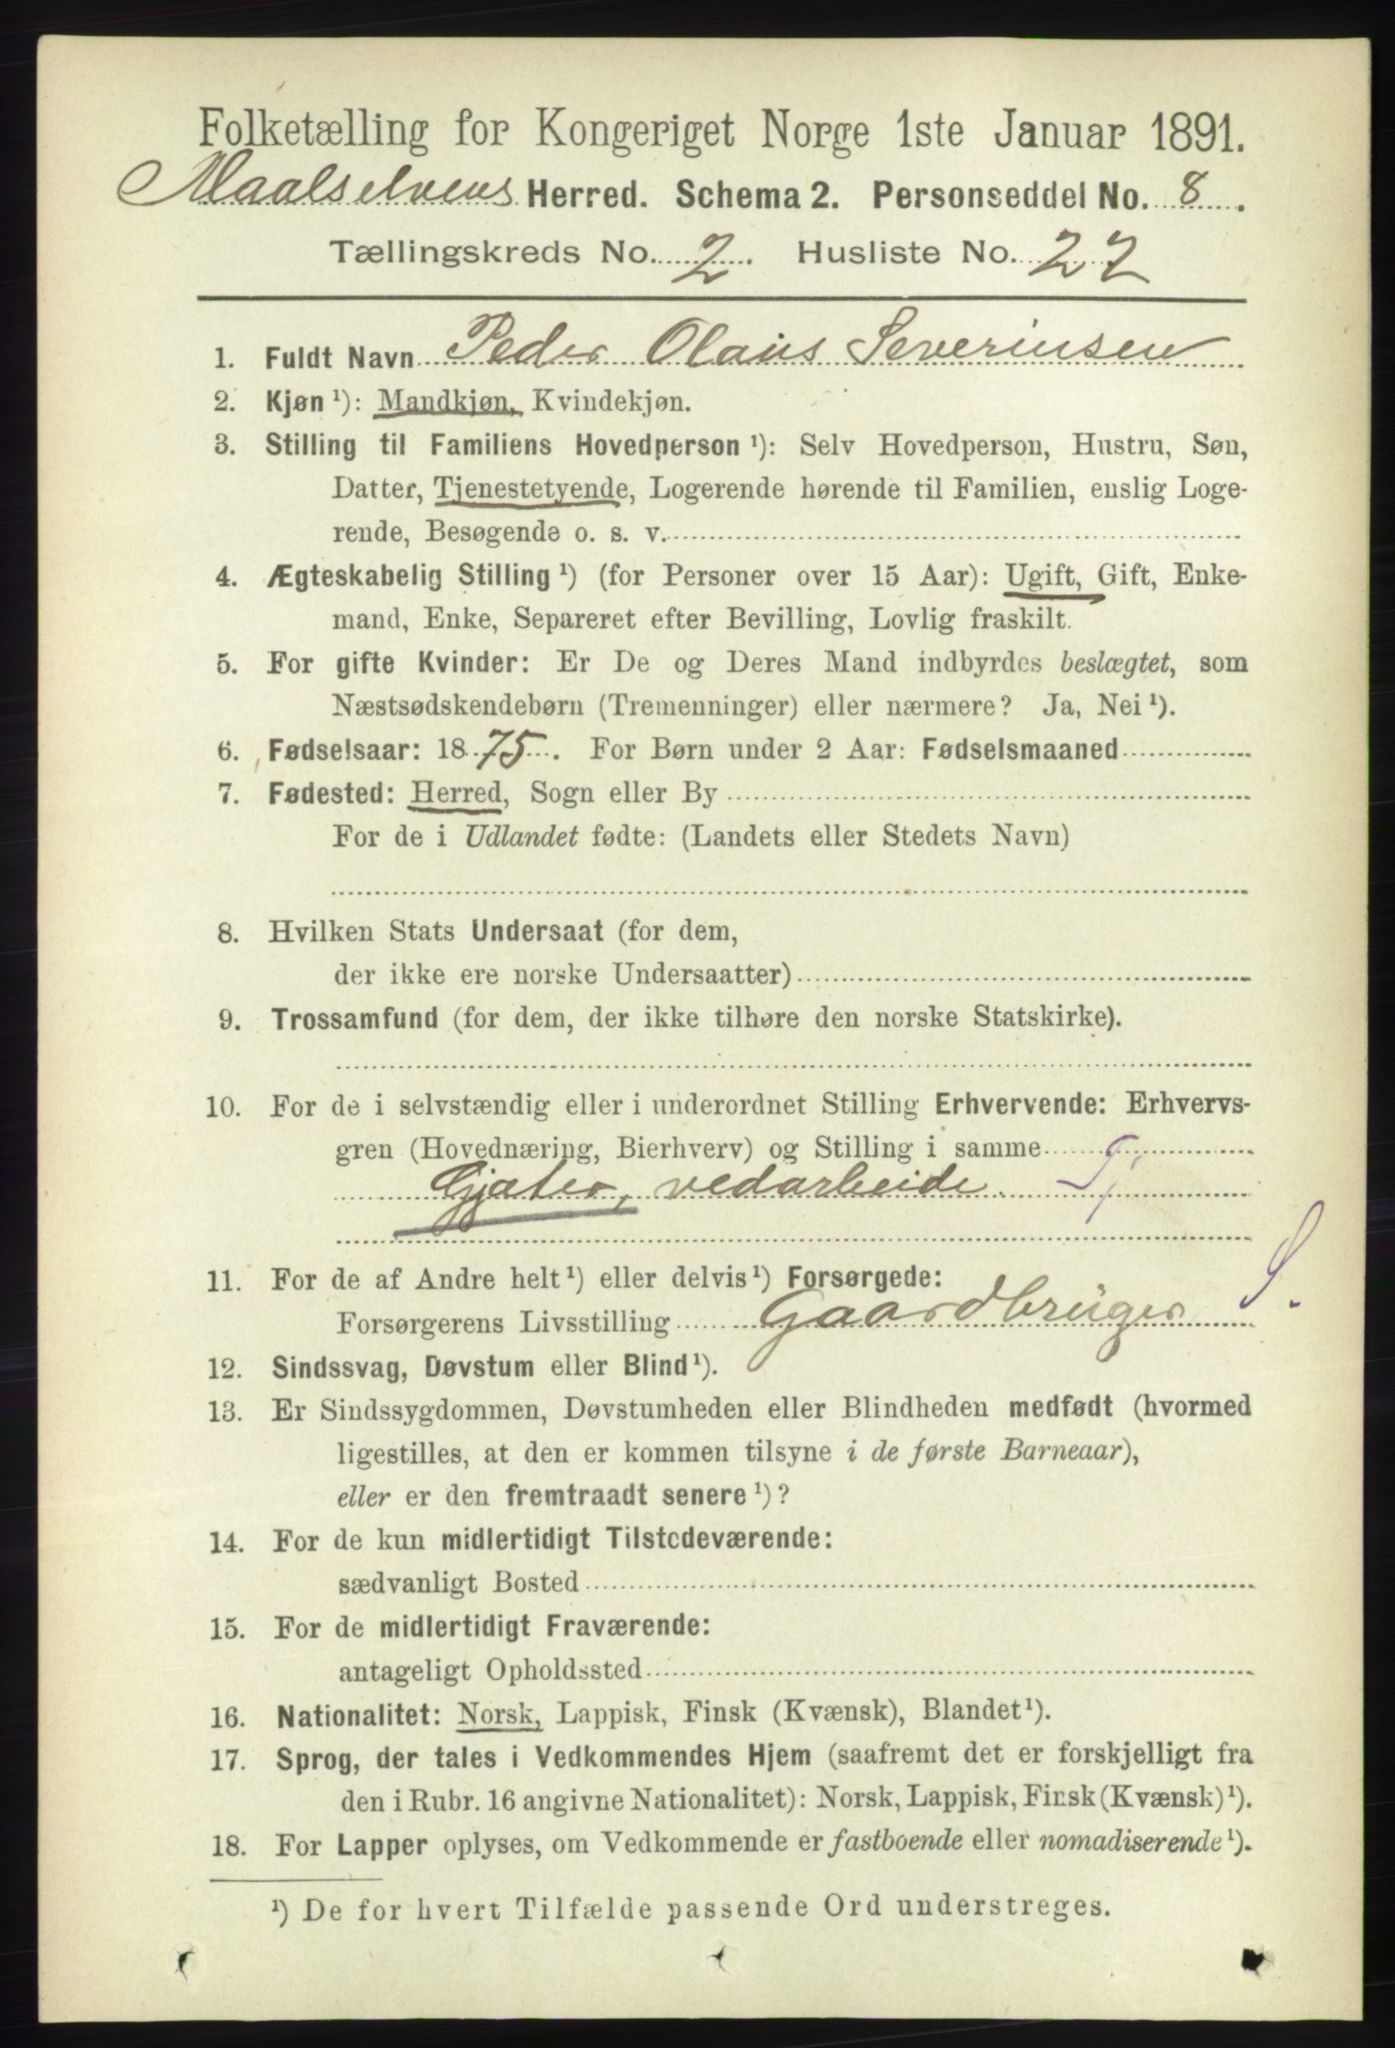 Folketælling for Kongeriget Norge 1ste Januar 1891.
Maalselvens Herred. Schema 2. Personseddel No. 8.
Tællingskreds No. 2. Husliste No. 27
1. Fuldt Navn Peder Olaus Severinsen
2. Kjøn ¹): Mandkjøn, Kvindekjøn.
3. Stilling til Familiens Hovedperson ¹): Selv Hovedperson, Hustru, Søn,
Datter, Tjenestetyende, Logerende hørende til Familien, enslig Loge-
rende, Besøgende o. s. v.
4. Ægteskabelig Stilling ¹) (for Personer over 15 Aar): Ugift, Gift, Enke-
mand, Enke, Separeret efter Bevilling, Lovlig fraskilt.
5. For gifte Kvinder: Er De og Deres Mand indbyrdes beslægtet, som
Næstsødskendebørn (Tremenninger) eller nærmere? Ja, Nei ¹).
6. Fødselsaar: 1875. For Børn under 2 Aar: Fødselsmaaned
7. Fødested: Herred, Sogn eller By
For de i Udlandet fødte: (Landets eller Stedets Navn)
8. Hvilken Stats Undersaat (for dem,
der ikke ere norske Undersaatter)
9. Trossamfund (for dem, der ikke tilhøre den norske Statskirke).
10. For de i selvstændig eller i underordnet Stilling Erhvervende: Erhvervs-
gren (Hovednæring, Bierhverv) og Stilling i samme
Gjæter, vedarbeide. Tj
11. For de af Andre helt ¹) eller delvis ¹) Forsørgede:
Forsørgerens Livsstilling Gaardbruger S.
12. Sindssvag, Døvstum eller Blind ¹).
13. Er Sindssygdommen, Døvstumheden eller Blindheden medfødt (hvormed
ligestilles, at den er kommen tilsyne i de første Barneaar),
eller er den fremtraadt senere ¹)?
14. For de kun midlertidigt Tilstedeværende:
sædvanligt Bosted
15. For de midlertidigt Fraværende:
antageligt Opholdssted
16. Nationalitet: Norsk, Lappisk, Finsk (Kvænsk), Blandet ¹).
17. Sprog, der tales i Vedkommendes Hjem (saafremt det er forskjelligt fra
den i Rubr. 16 angivne Nationalitet): Norsk, Lappisk, Finsk (Kvænsk) ¹).
18. For Lapper oplyses, om Vedkommende er fastboende eller nomadiserende ¹).
¹) De for hvert Tilfælde passende Ord understreges.